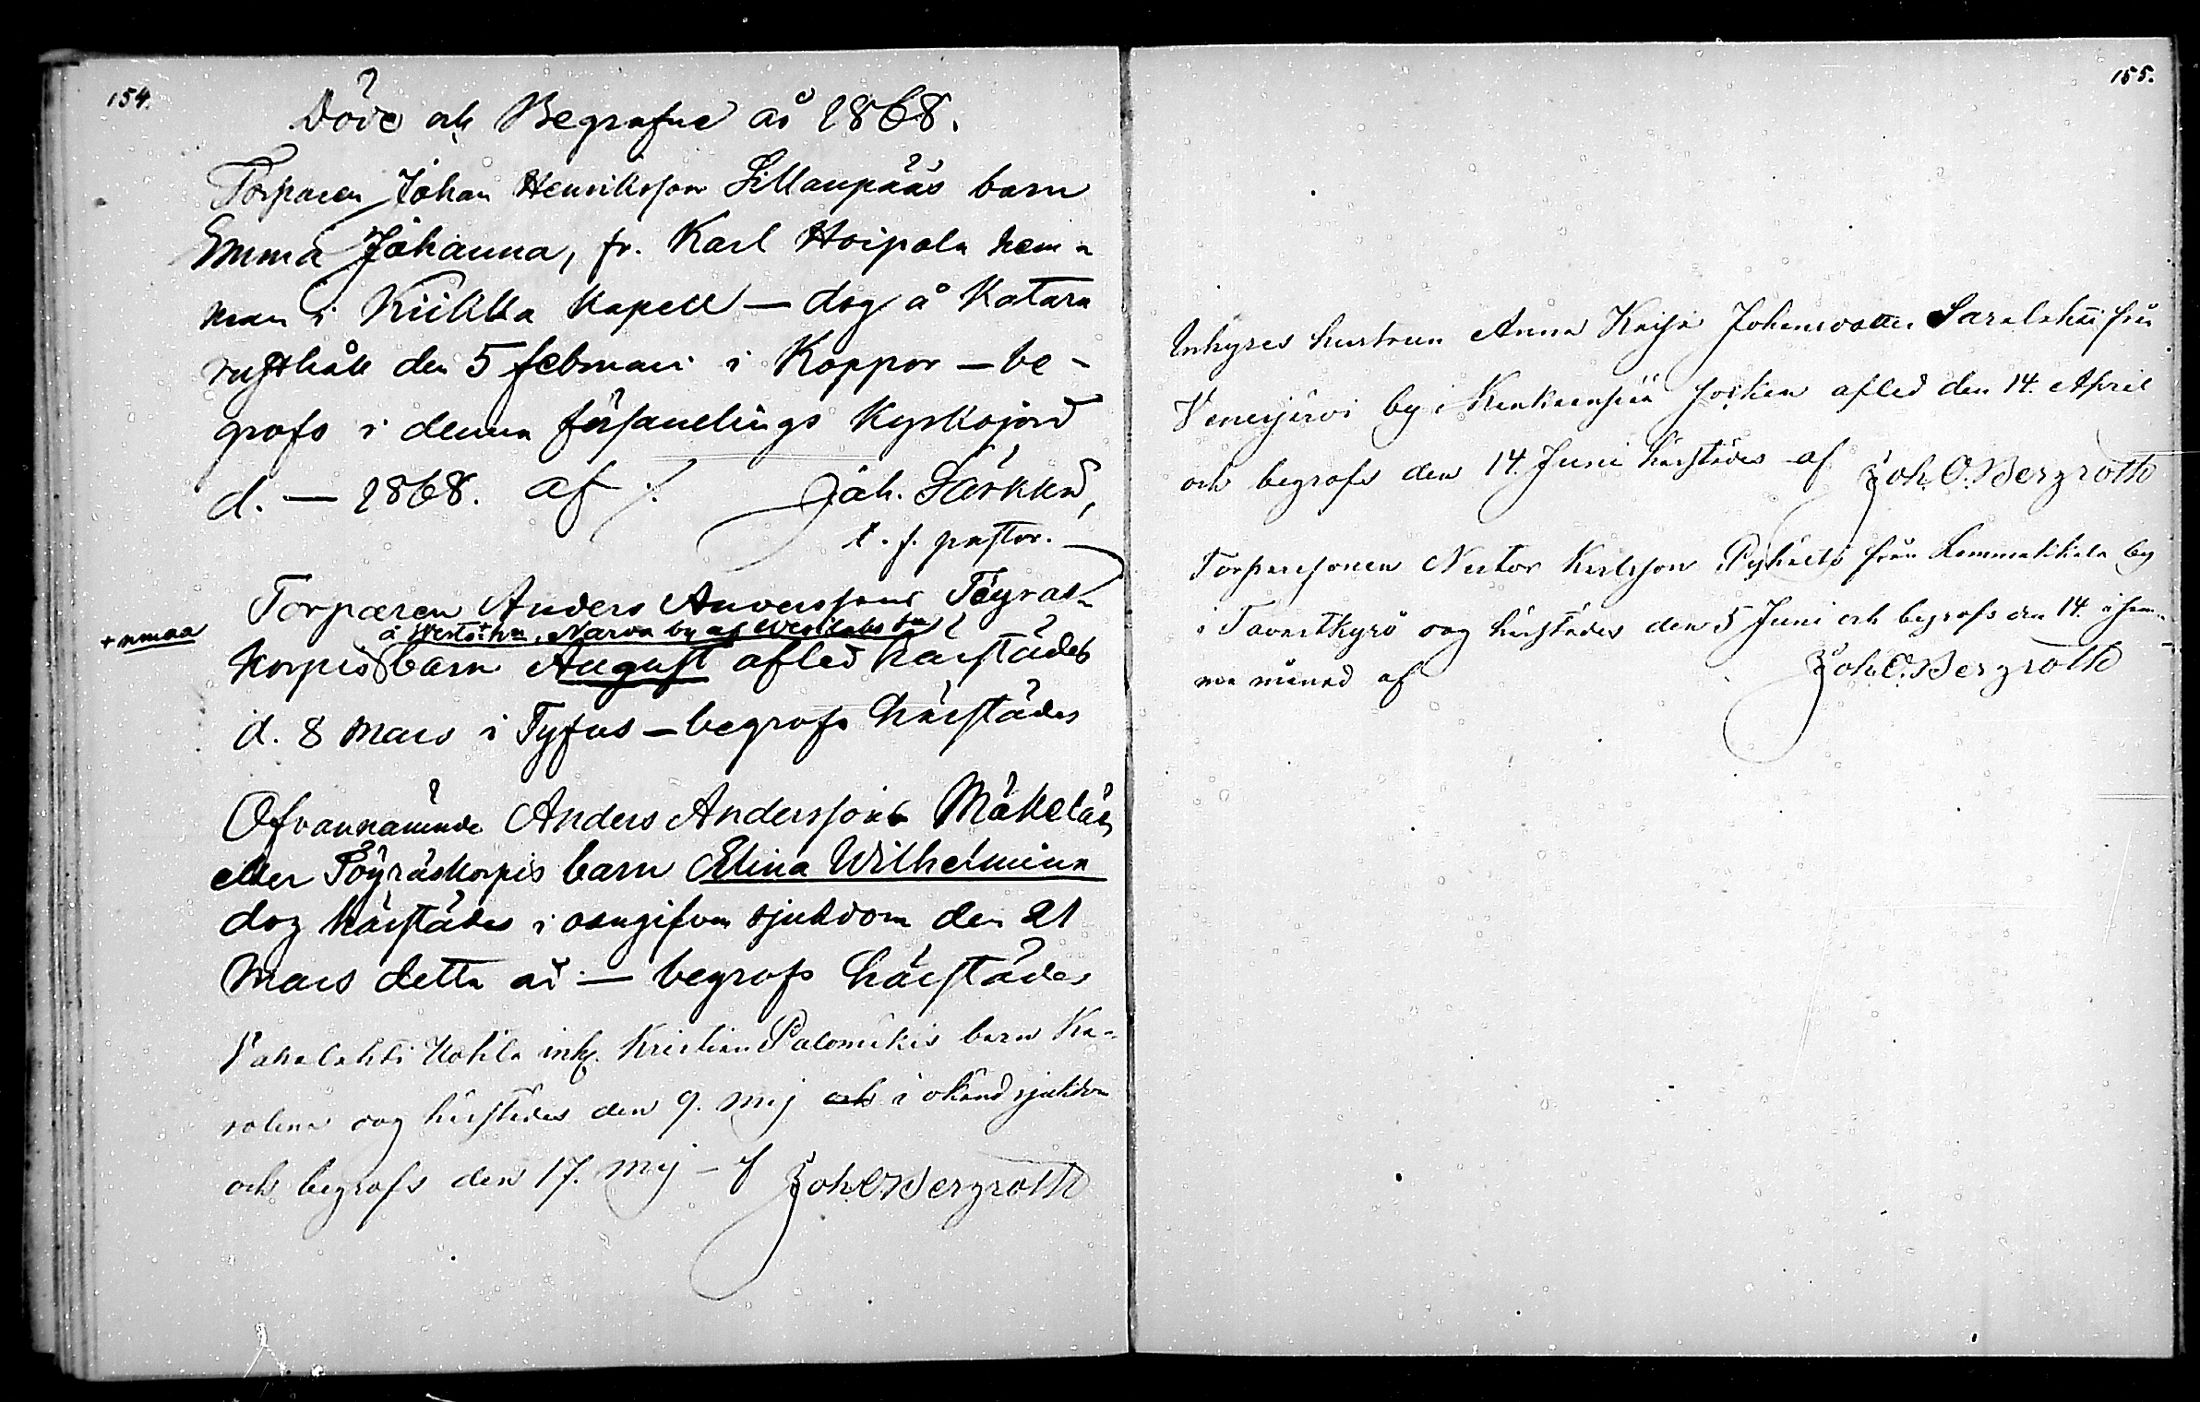 154.
Döde och Begrafne år 1868.
Torparen Johan Henriksson Sillanpääs barn
Emma Johanna, fr. Karl Hoipola hem-
man i Kiikka Kapell — dog å Katara
rusthåll den 5 februari i Koppor — be-
grofs i denna församlings Kyrkojord
d. — 1868. af ⁒ Joh. Särkkä,
t. f. pastor.
Torparen Anders Anderssons Töyräs-
+ nmaa
å + Narva by af Vesilaks sn
korpis barn August afled härstädes
d. 8 Mars i Tyfus — begrofs härstädes
Ofvannämnde Anders Anderssons Mäkeläs
eller Töyräskorpis barn Elina Wilhelmina
dog härstädes i oangifven sjukdom den 21
Mars detta år — begrofs härstädes
Vahalahti Uotila inh. Kristian Palomäkis barn Ka-
rolina dog härstädes den 9. Maj och i okänd sjukdom
och begrofs den 17. Maj – af Joh. O. Bergroth
155.
Inhyses hustrun Anna Kaisa Johansdotter från
Venesjärvi by i Kankaanpää socken afled den 14. April
och begrofs den 14. Juni härstädes af Joh. O. Bergroth
Torparesonen Nestor Karlsson från Lemmakkala by
i Tavastkyrö dog härstädes den 5 Juni och begrofs den 14. i sam-
ma månad af Joh. O. Bergroth